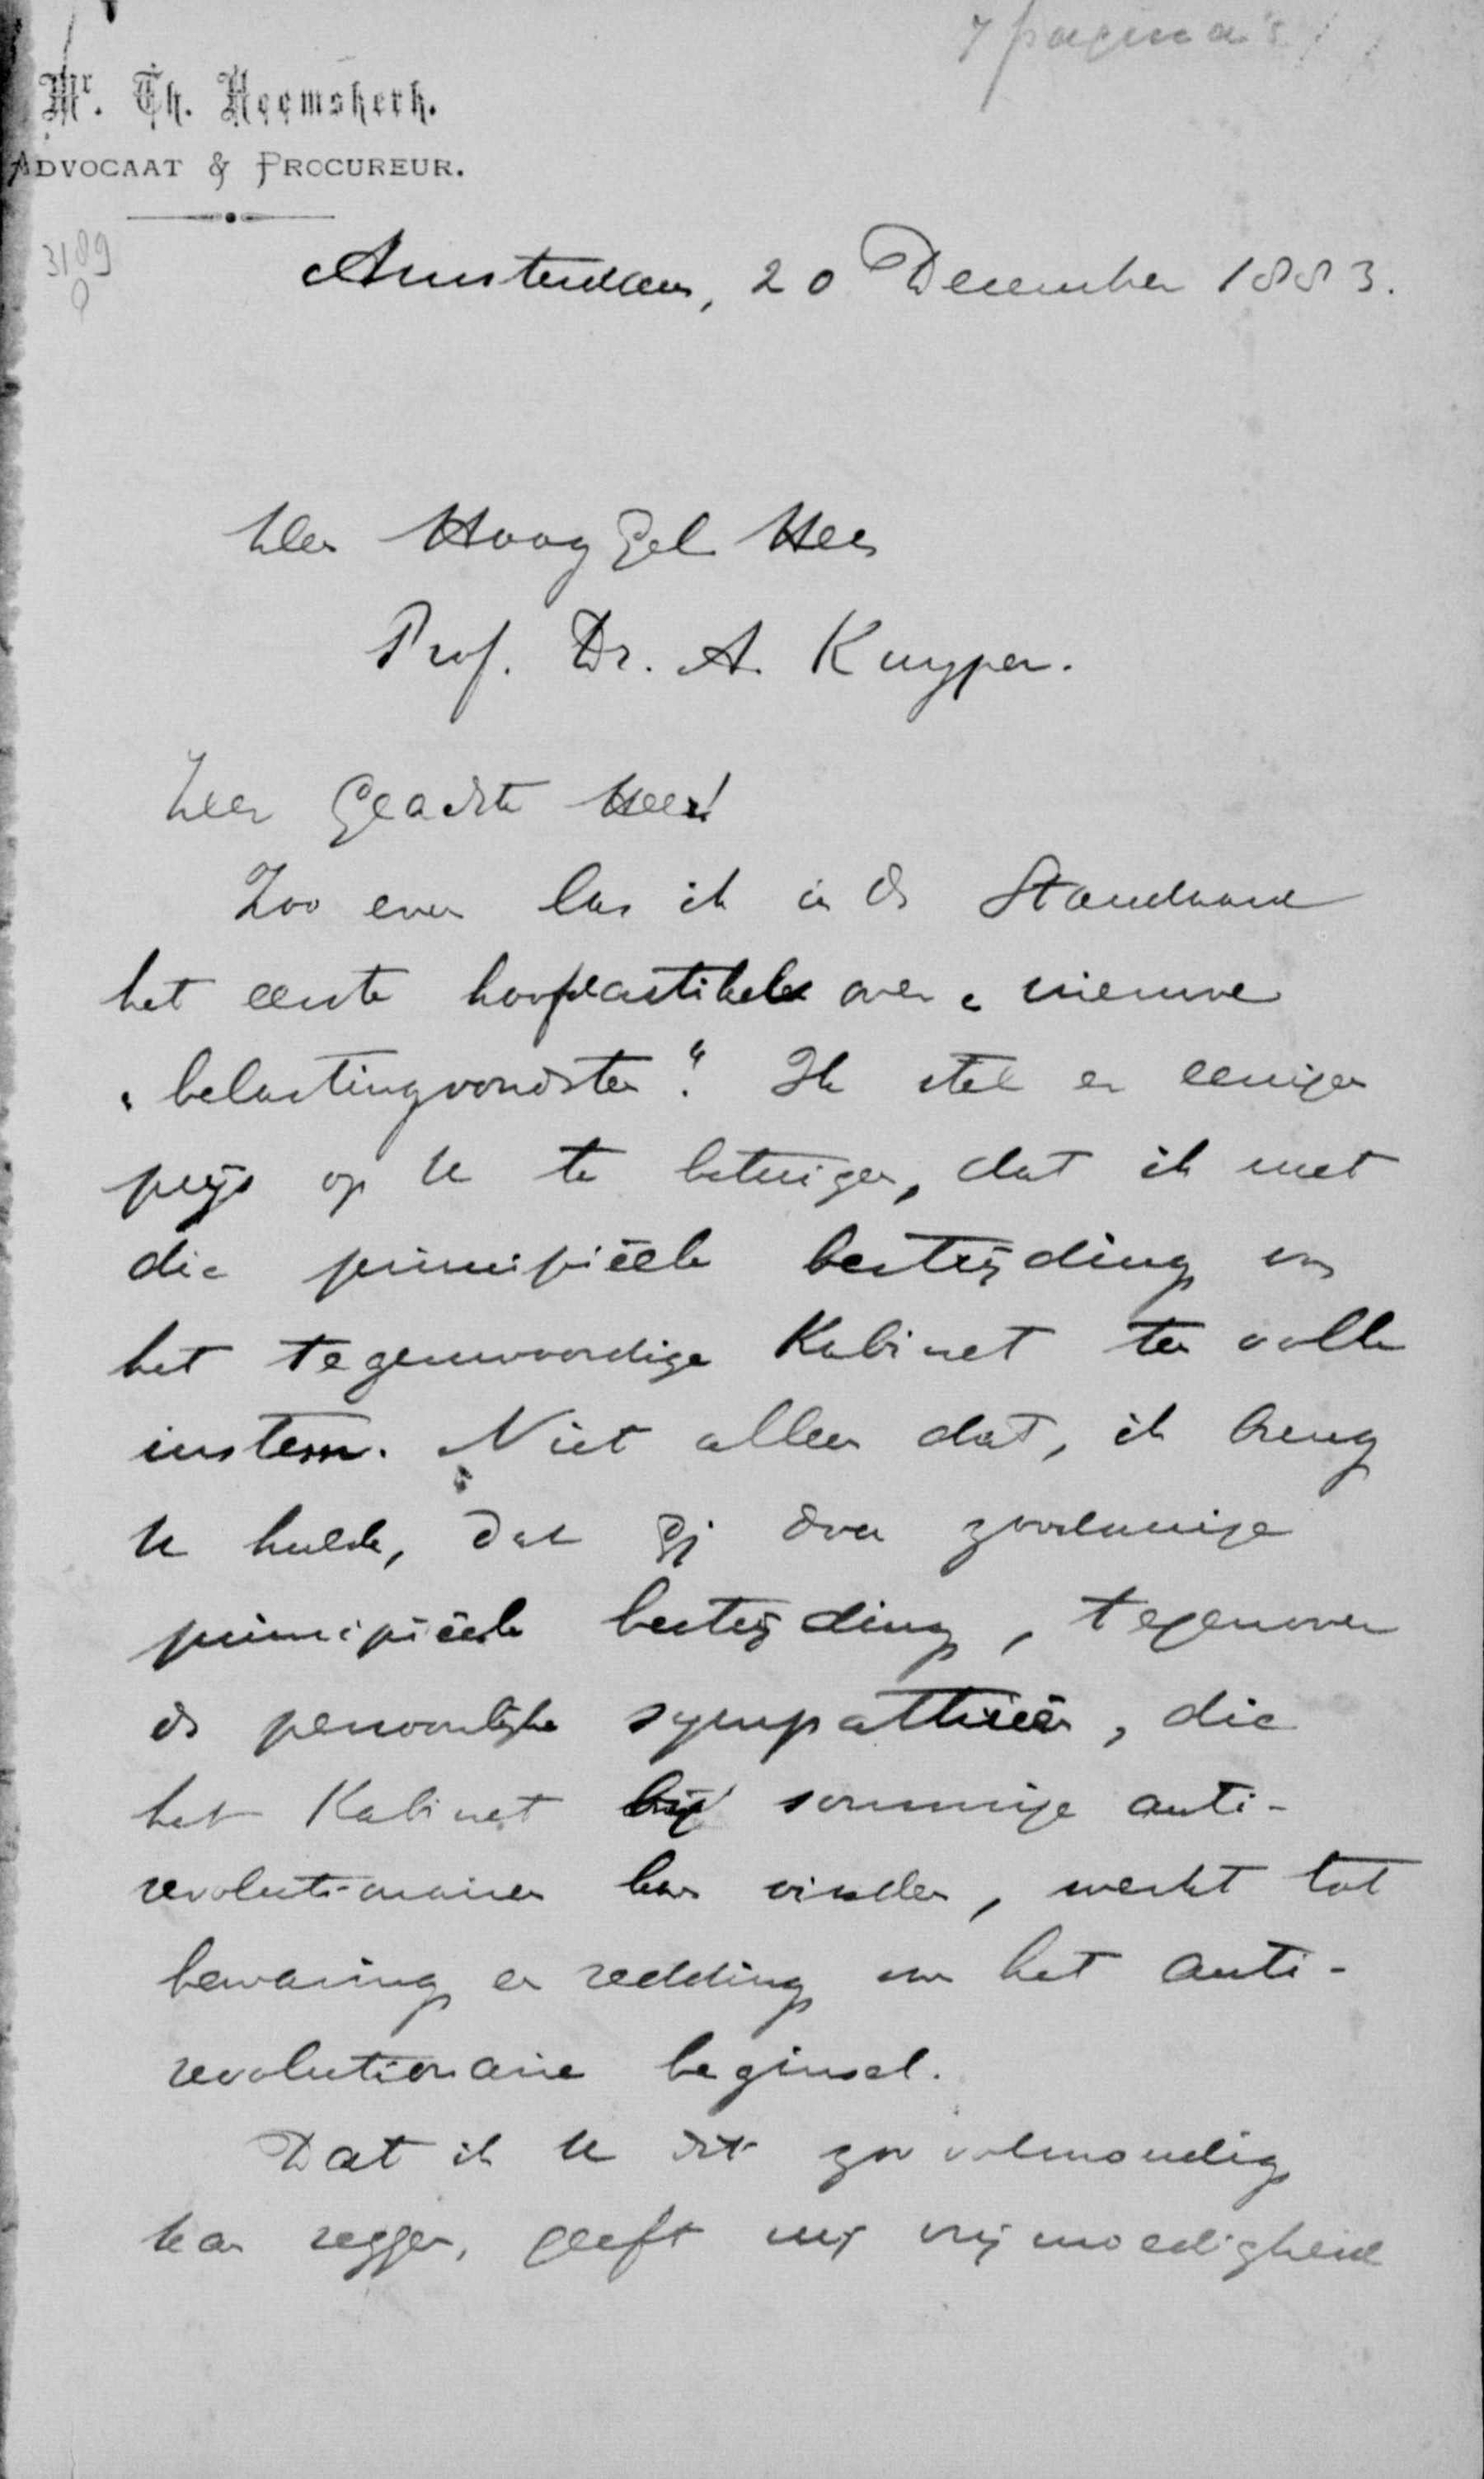 7 pagina's
Mr. Th. Heemskerk.
ADVOCAAT & PROCUREUR.
3189
Amsterdam, 20 December 1883.
Den Hoog Gel. Heer
Prof. Dr. A. Kuyper.
Zeer Geachte Heer!
Zoo even las ik in de Standaard
het eerste hoofdartikel over „nieuwe
„belastingvondsten". Ik stel er eenigen
prijs op U te betuigen, dat ik met
die principiëele bestrijding van
het tegenwoordige Kabinet ten volle
instem. Niet alleen dat, ik breng
U hulde, dat gij door zoodanige
principiëele bestrijding, tegenover
de persoonlijke sympathieën, die
het Kabinet bij sommige anti-
revolutionairen kan vinden, werkt tot
bewaring en redding van het anti-
revolutionaire beginsel.
Dat ik U dit zoo volmondig
kan zeggen, geeft mij vrijmoedigheid